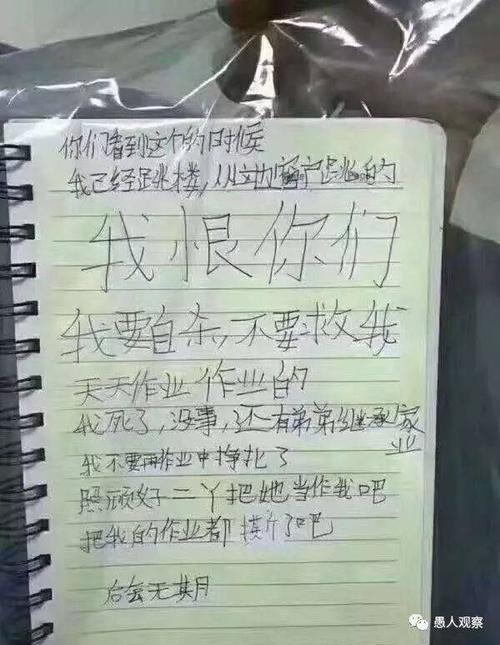 你们看到这个的时候
我已经跳楼,从这边窗户跳的
我恨你们
我要自杀,不要救我
天天作业作业的
我死了,没事,还有弟弟继承家业
我不要再作业中挣扎了
照顾好二丫把她当作我吧
把我的作业都撕了吧
后会无期
愚人观察